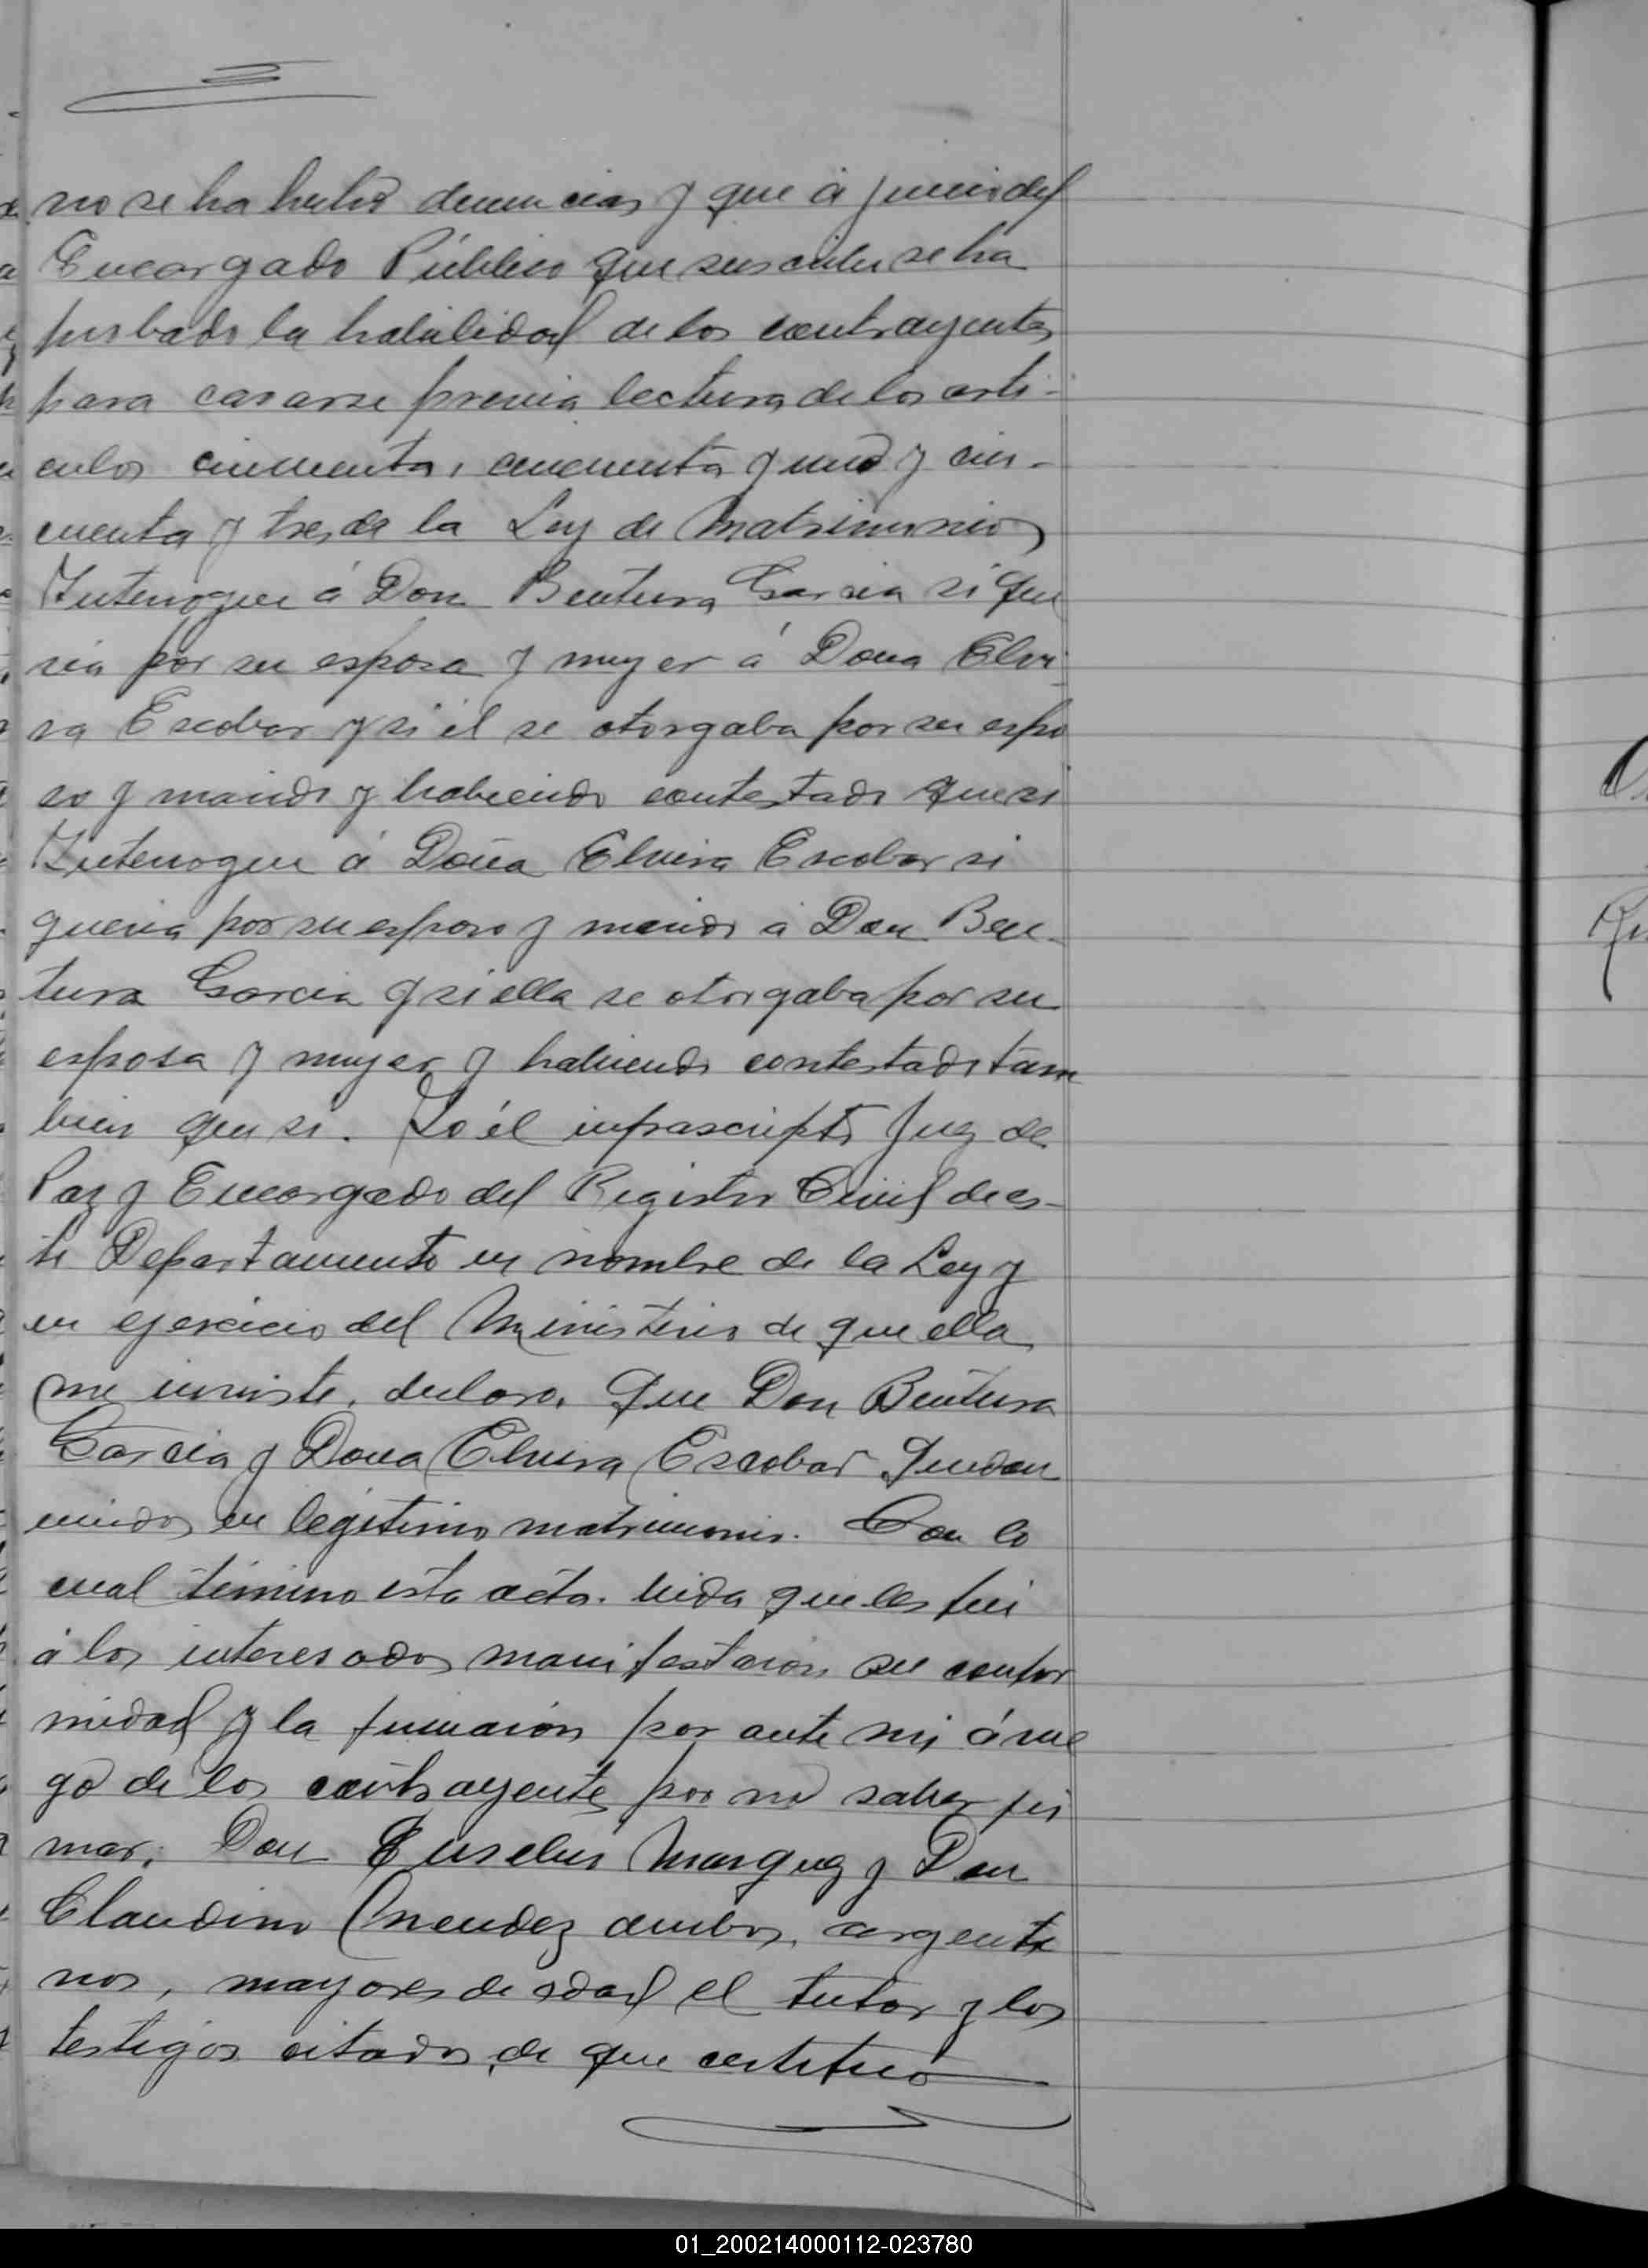 no se ha hecho denuncias y que á juicio del
Encargado Público que suscribe se ha
probado la habilidad de los contrayentes
para casarse previa lectura de los arti-
culos cincuenta, cincuenta y uno y cin-
cuenta y tres de la Ley de Matrimonio,
Interrogue á Don Bentura Garcia si que
ria por su esposa y muger á Doña Elvi
ra Escobar y si él se otorgaba por su espo
so y marido y habiendo contestado que si
Interrogue á Doña Elvira Escobar si
queria por su esposo y marido á Don Ben-
tura Garcia y si ella se otorgaba por su
esposa y muger y habiendo contestado tam
bien que si. Yo él infrascripto Juez de
Paz y Encargado del Registro Civil de es-
te Departamento en nombre de la Ley y
en ejercicio del Ministerio de que ella
me inviste, declaro, Que Don Bentura
Garcia y Doña Elvira Escobar quedan
unidos en legitimo matrimonio. Con lo
cual termino esta acta. leida que les fui
á los interesados manifestaron su confor
midad y la firmaron por ante mi, á rue
go de los contrayentes por no saber fir
mar, Don Eusebio Marquez y Don
Claudino Mendez ambos, argenti
nos, mayores de edad el tutor y los
testigos citados, de que certifico
01_200214000112-023780